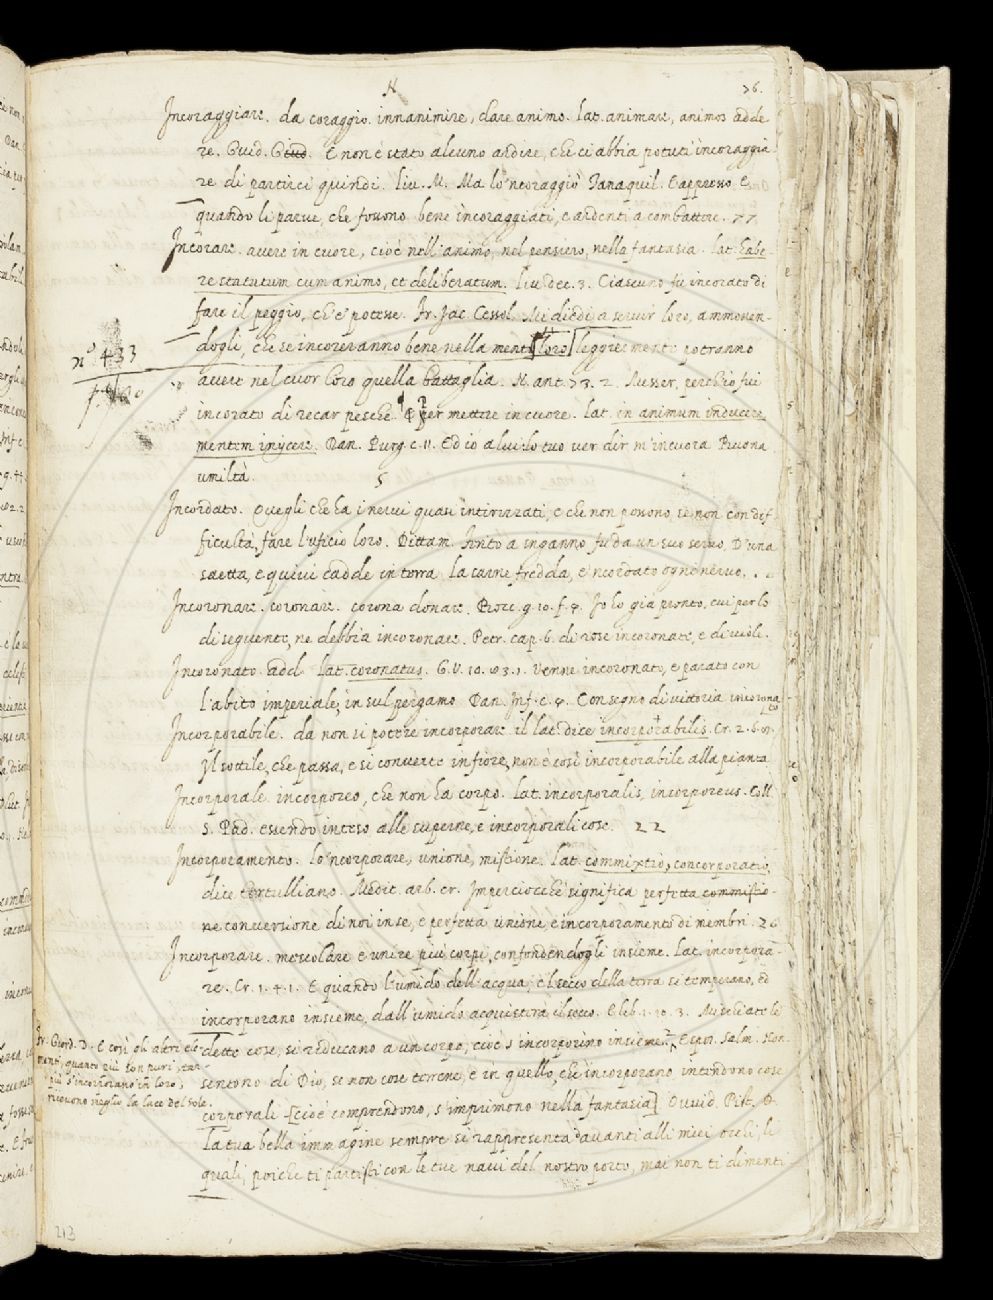 N
76.
Incoraggiare. da coraggio. innanimire, dare animo. lat. animare, animos adde
re. Guid. G. E non è stato alcuno ardire, che ci abbia potuti incoraggia
re di partirci quindi. liu. M. Ma lo 'ncoraggiò Tanaquil. E appresso. E
quando li parue, che fossono bene incoraggiati, e ardenti a combattere. 77
Incorare. auere in cuore, cioè nell'animo, nel pensiero, nella fantasia. lat. habe-
re statutum cum animo, et deliberatum. liu. dec. 3. Ciascuno fu incorato di
fare il peggio, ch'e' potesse. Fr. Jac. Cessol. Mi diedi a seruir loro, ammonen-
dogli, che se incoreranno bene nella mente loro leggiermente potranno
nº 433
auere nel cuor loro quella battaglia. N. ant. 73. 2. Messer, perch'io fui
incorato di recar pesche. E per mettere in cuore. lat. in animum inducere
mentem inijcere. Dan. Purg. c. 11. Ed io a lui: lo tuo uer dir m'incuora Buona
umiltà. 5
Incordato. Quegli che ha i nerui quasi intirizzati, e che non possono, se non con dif-
ficultà, fare l'uficio loro. Dittam. ferito a inganno fu da un suo seruo, D'una
saetta, e quiui cadde in terra la carne fredda, e 'ncordato ogni neruo. . .
Incoronare. coronare. corona donare. Bocc. g. 10. f. 4. Io ho già pronto, cui per lo
di seguente, ne debbia incoronare. Petr. cap. 6. di rose incoronate, e di uiole.
Incoronato. add. lat. coronatus. G. V. 10. 3. 1. Venne incoronato, e parato con
l'abito imperiale, in sul pergamo. Dan. Inf. c. 4. Con segno di uittoria incorona
to
Incorporabile. da non si potere incorporare il lat. dice incorporabilis. Cr. 2. 6.
Il sottile, che passa, e si conuerte in fiore, non è così incorporabile alla pianta
Incorporale. incorporeo, che non ha corpo. lat. incorporalis, incorporeus. Coll.
S. Pad. essendo inteso alle superne, e incorporali cose. 22
Incorporamento. lo 'ncorporare, unione, mistione. lat. commixtio, concorporatio,
dice tertulliano. Medit. arb. cr. Imperciocchè significa perfetta commistio-
ne conuersione di noi in se, e perfetta unione, e incorporamento di membri. 26
Incorporare. mescolare e unire più corpi, confondendogli insieme. lat. incorpora-
re. Cr. 1. 4. 1. E quando l'umido dell'acqua, e 'l secco della terra si temperano, ed
incorporano insieme, dall'umido acquisterà il secco. E lib. 1. 10. 3. Mischiate le
dette cose, si reducano a un corpo, cioè s'incorporino insieme. Espos. Salm. Non
fr. Giord. D. E così gli altri ele-
menti, quanto più son puri, tan-
più s'incorporano in loro,
riceuono meglio la luce del sole.
sentono di Dio, se non cose terrene, e in quello, che incorporano intendono cose
corporali [cioè comprendono, s'imprimono nella fantasia] Ouuid. Pist. D.
La tua bella immagine sempre si rappresenta dauanti alli miei occhi, li
quali, poiche ti partisti con le tue naui del nostro porto, mai non ti dimenti-
213